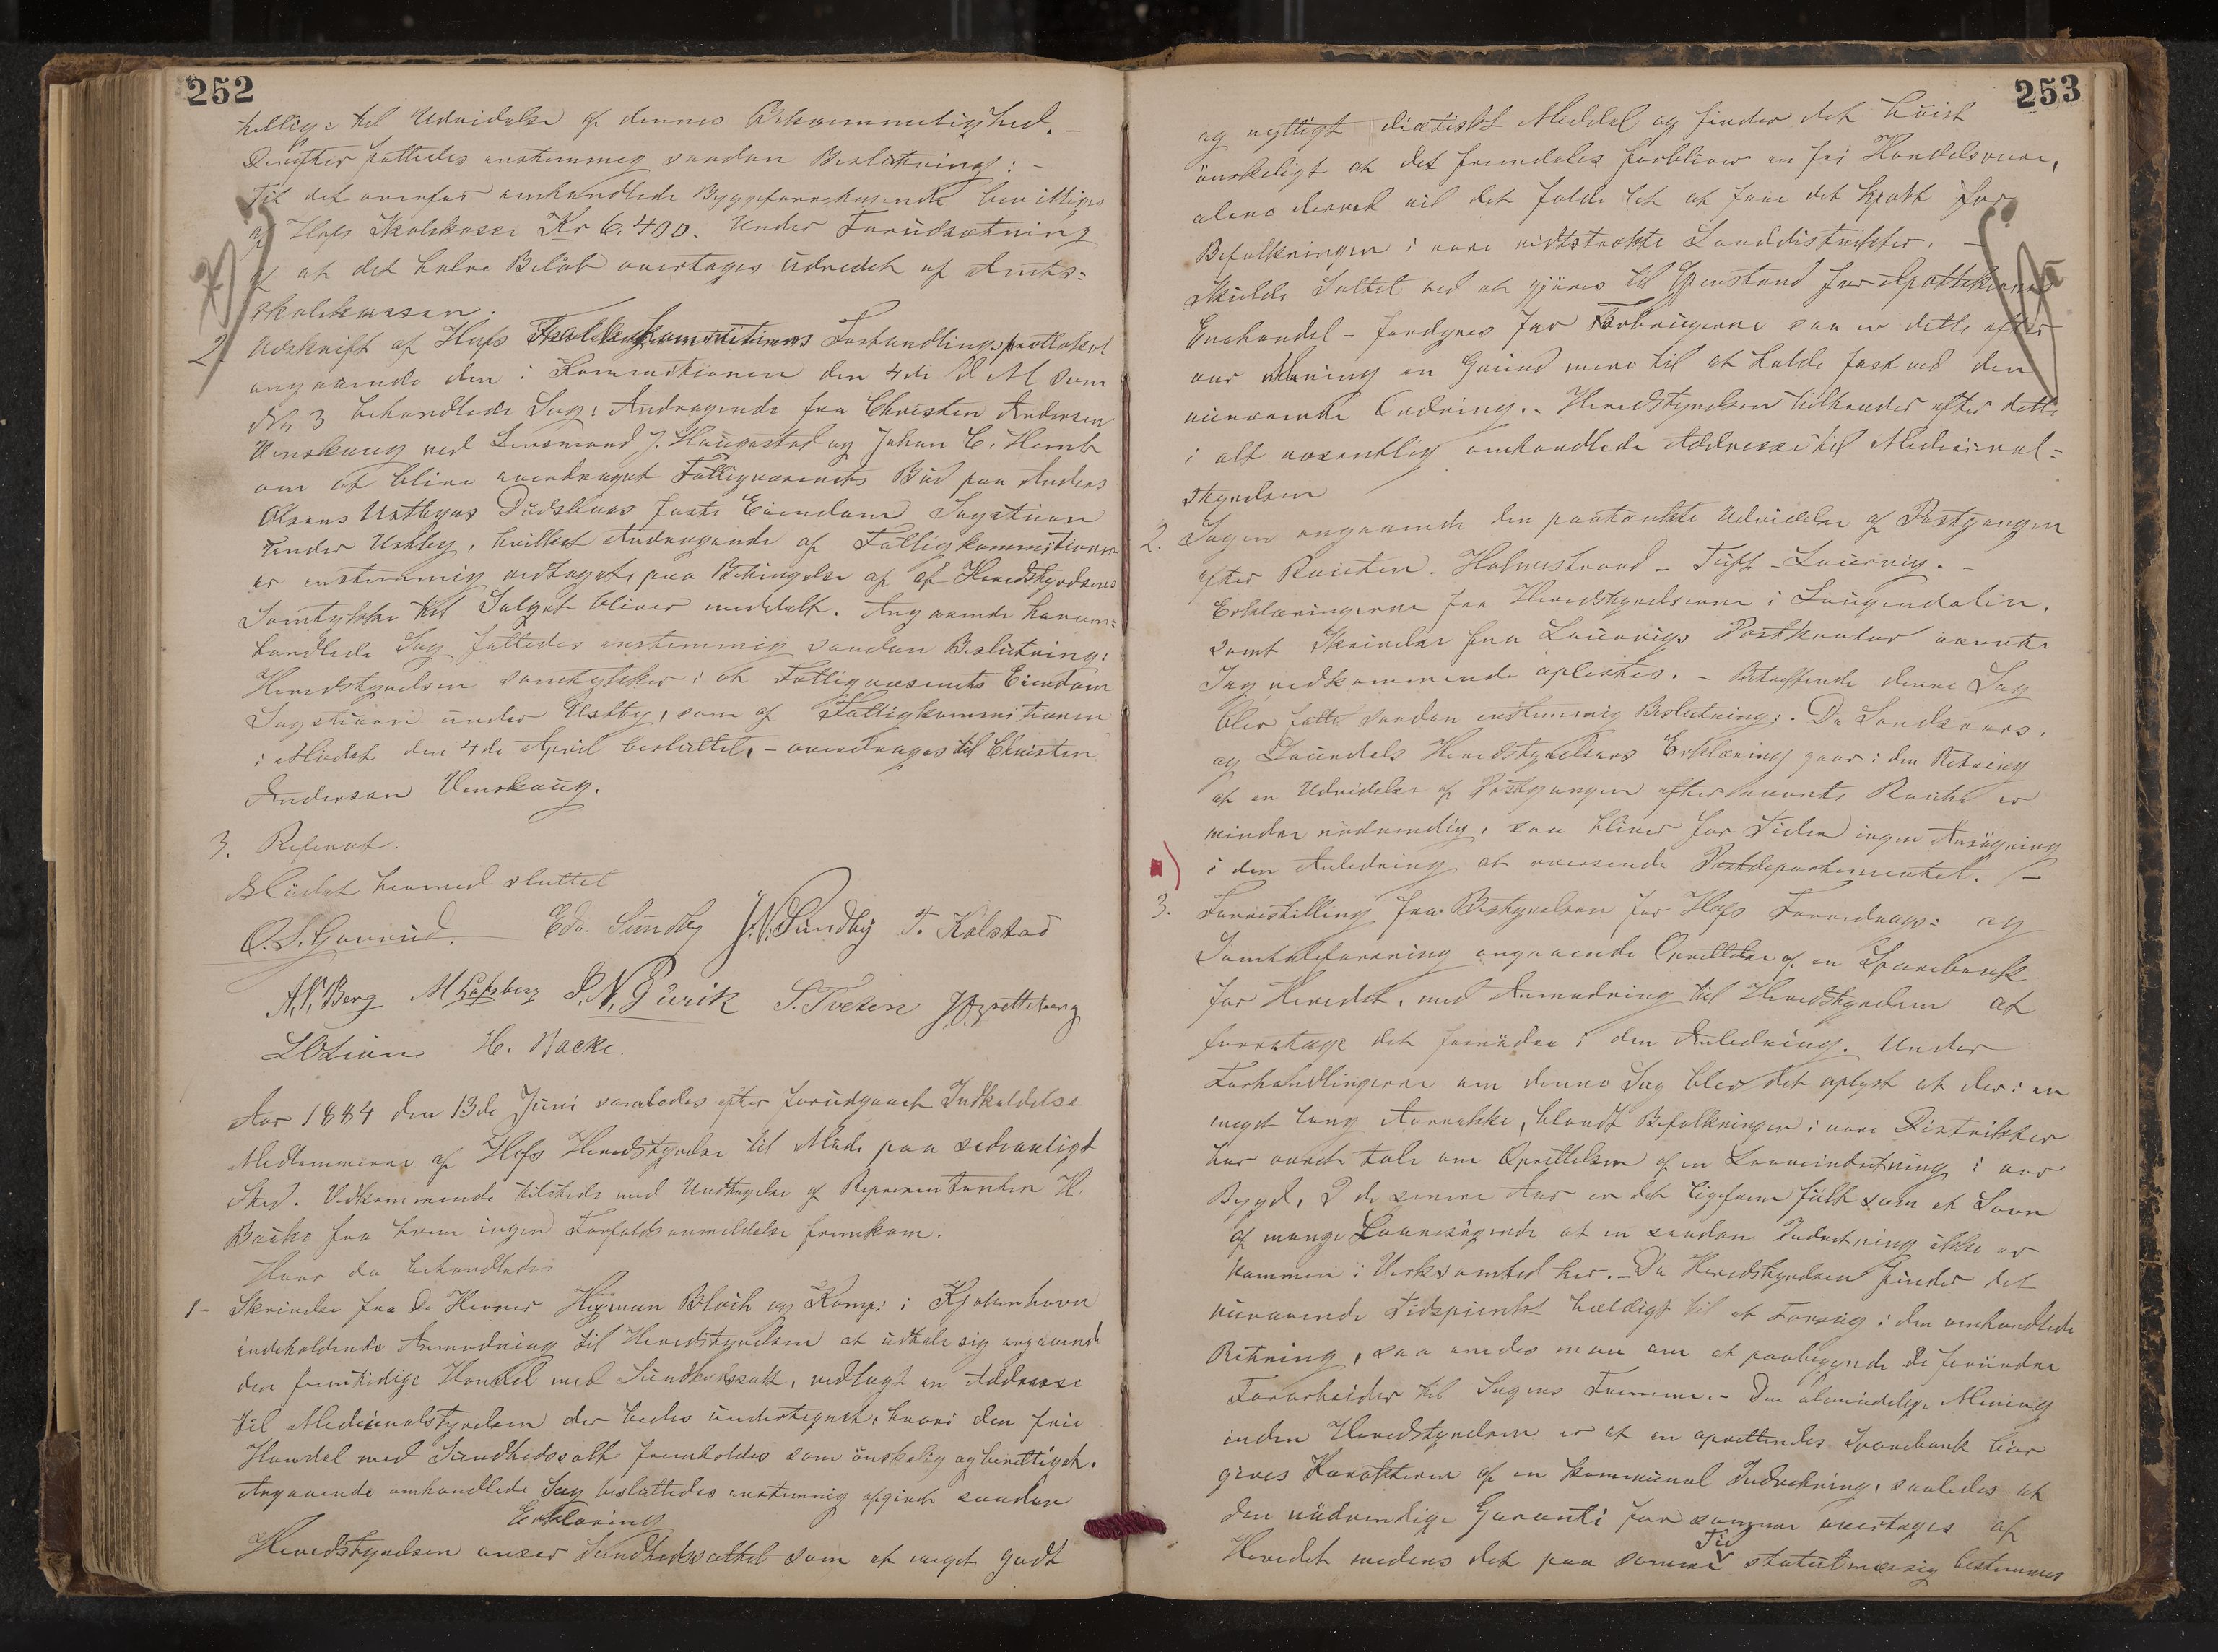 252
tillige til Udvidelse af dennes Bekvemmelighed. –
Derefter fattedes enstemmig saadan Beslutning: –
Til det ovenfor omhandlede Byggeforetagende bevilliges
af Hofs Skolekasse Kr 6.400. Under Forudsætning
af at det halve Beløb overtages udredet af Amts=
skolekassen.
2. Udskrift af Hofs Fattigkommissions Forhandlingsprotokol
angaaende den i Kommitionen den 4de d M som
No 3 behandlede Sag: Andragende fra Christen Andersen
Venskaug ved Lensmand J. Haugestad og Johan C. Hemb
om at blive overdraget Fattigvæsenets Bud paa Anders
Olsens Østbyes Dødsboes faste Eiendom Sagstuen
under Østby, hvilket Andragende af Fattigkommitionen
er enstemmig vedtaget, paa Betingelse af at Heredstyrelsens
Samtykke til Salget bliver meddelt. Angaaende herom=
handlede Sag fattedes enstemmig saadan Beslutning:
Heredstyrelsen samtykker i at Fattigvæsenets Eiendom
Sagstuen under Østby, som af Fattigkommitionen
i Mødet den 4de April besluttet, – overdrages til Christen
Andersen Venskaug.
3. Referat.
Mødet hermed sluttet
O. S. Gunnerud. Edv. Sundby J. N. Sundby T. Kolstad
A. P. Berg M Løksberg P. N. Gurik S. Tveten
L O Lien H. Backe.
Aar 1884 den 13de Juni samledes efter forudgaaet Indkaldelse
Medlemmerne af Hofs Heredstyrelse til Møde paa sedvanligt
Sted. Vedkommende tilstede med Undtagelse af Repræsentanten H.
Backe fra hvem ingen Forfaldsanmeldelse fremkom.
Hvor da behandledes
1– Skrivelse fra De Herrer Herman Bloch og Komp: i Kjøbenhavn
indeholdende Anmodning til Heredstyrelsen at udtale sig angaaende
den fremtidige Handel med Sundhedssalt, vedlagt en Addresse
til Medicinalstyrelsen der bedes undertegnet, hvori den frie
Handel med Sundhedssalt fremholdes som ønskelig og berettiget.
Angaaende omhandlede Sag besluttedes enstemmig afgivet saadan
Erklæring
Heredstyrelsen anser Sundhedssaltet som et meget godt
253
og nyttigt diætiskt Middel og finder det høist
ønskeligt at det fremdeles forbliver en fri Handelsvare,
alene derved vil det falde let at faae det kjøbt for
Befolkningen i vore vidtstrakte Landdistrikter. –
Skulde Saltet ved at gjøres til Gjenstand for Apothekernes
Enehandel – fordyres for Forbrugerne saa er dette efter
vor Mening en Grund mere til at holde fast ved den
nuværende Ordning. Heredstyrelsen tiltræder efter dette
i alt væsentlig omhandlede Addresse til Medicinal=
styrelsen
2. Sagen angaaende den paatænkte Udvidelse af Postgangen
efter Routen – Holmestrand – Tuft – Laurvig. –
Erklæringerne fra Heredstyrelserne i Laugendalen,
samt Skrivelse fra Laurvigs Postkontor nævnte
Sag vedkommende oplæstes. – Betræffende denne Sag
blev fattet saadan enstemmig Beslutning: – Da Sandsværs,
og Laurdals Heredstyrelsers Erklæring gaar i den Retning
at en Udvidelse af Postgangen efter nævnte Route er
mindre nødvendig, saa bliver for Tiden ingen Ansøgning
i den Anledning at oversende Postdepartementet. –
3. Forestilling fra Bestyrelsen for Hofs Foredrags= og
Samtaleforening angaaende Oprettelse af en Sparebank
for Heredet, med Anmodning til Heredstyrelsen at
foretage det fornødne i den Anledning. Under
Forhandlingerne om denne Sag blev det oplyst at der i en
meget lang Aarrække, blandt Befolkningen i vore Distrikter
har været tale om Oprettelsen af en Laaneindretning i vor
Bygd, I de senere Aar er det ligefrem følt som et Savn
af mange Laanesøgende at en saadan Indretning ikke er
kommen i Virksomhed her. – Da Heredstyrelsen finder det
nuværende Tidspunkt heldigt til et Forsøg i den omhandlede
Retning, saa enedes man om at paabegynde de fornødne
Forarbeider til Sagens Fremme. – Den almindelige Mening
inden Heredstyrelsen er at en oprettendes Sparebank bør
gives Karakteren af en kommunal Indretning, saaledes at
den nødvendige Garanti for samme overtages af
Heredet medens det paa samme Tid statutmæssig bestemmes